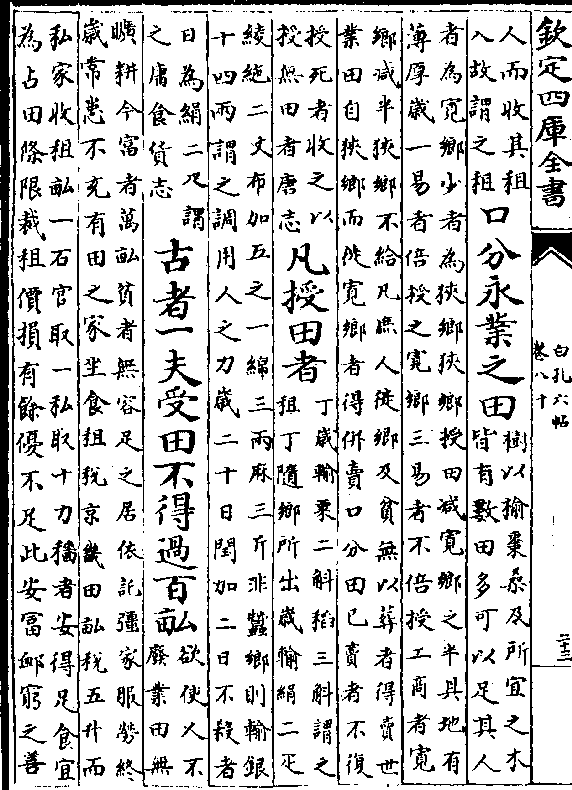 欽定四庫全書
白孔六帖
卷八十
二十三
人而收其租
入故謂之租
口分永業之田
樹以榆棗桑及所宜之木
皆有數田多可以足其人
者為寛鄉少者為狹鄉狹鄉授田減寛鄉之半其地有
薄厚歳一易者倍授之寛鄉三易者不倍授工商者寛
鄉減半狹鄉不給凡庶人徙鄉及貧無以葬者得賣世
業田自狹鄉而徙寛鄉者得併賣口分田已賣者不復
授死者收之以
授無田者唐志
凡授田者
丁歳輸粟二斛稻三斛謂之
租丁隨鄉所出歳輸絹二疋
綾絁二丈布加五之一綿三兩麻三斤非蠶鄉則輸銀
十四兩謂之調用人之力歳二十日閏加二日不役者
日為絹二尺謂
之庸食貨志
古者一夫受田不得過百畝
欲使人不
廢業田無
曠耕今富者萬畝貧者無容足之居依託彊家服勞終
歳常患不充有田之家坐食租稅京畿田畝稅五升而
私家收租畝一石官取一私取十力穡者安得足食宜
為占田條限裁租價損有餘優不足此安富䘏窮之善